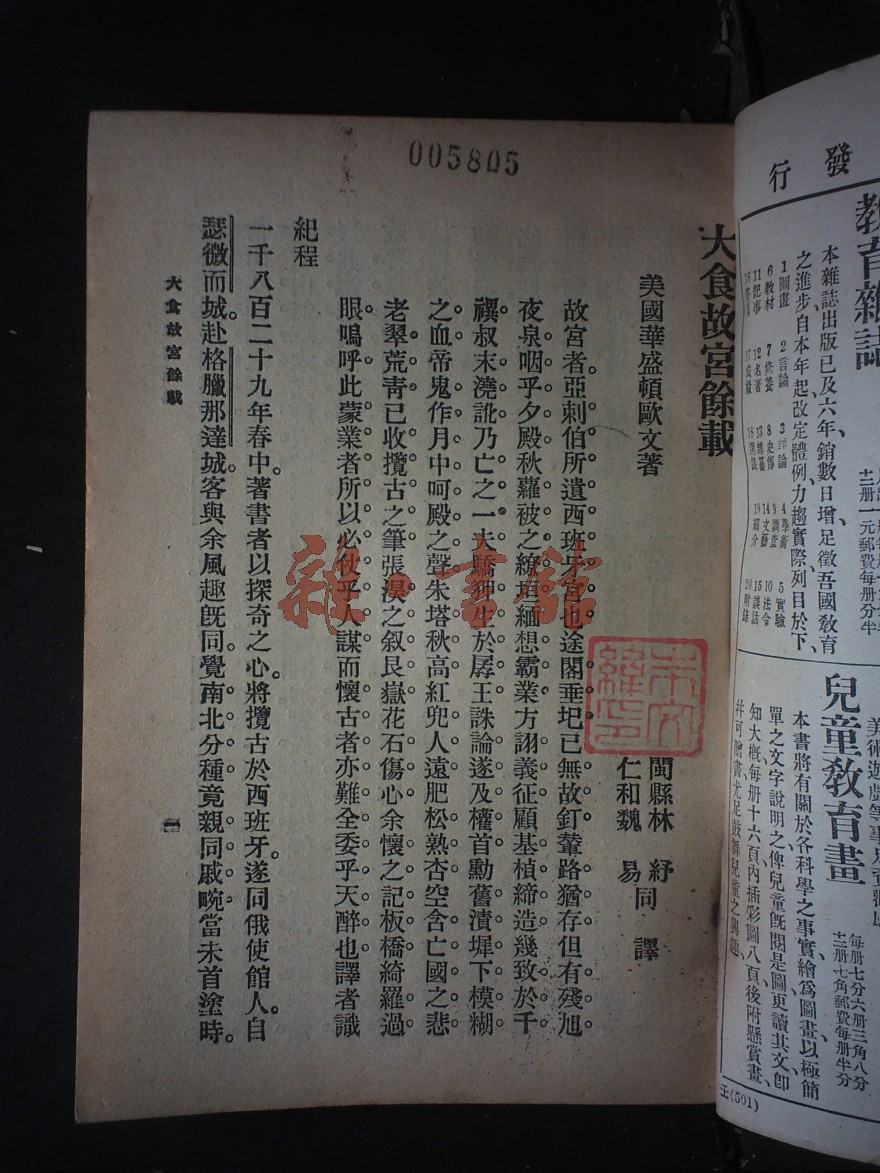 005805
大食故宮餘載
美國華盛頓歐文著
閩縣林　紓
仁和魏　易同　譯
故宮者。亞刺伯所遺西班牙宮也。途閣垂圮。已無故釘。輦路猶存。但有殘旭。
夜泉咽乎夕殿。秋蘿被之繚垣。緬想霸業。方詡義征。顧基楨締造。幾致於千
禩。叔末澆訛。乃亡之一夫。驕狎生於孱王。誅論遂及權首。勳舊漬墀下模糊
之血。帝鬼作月中呵殿之聲。朱塔秋高。紅兜人遠。肥松熟杏。空含亡國之悲。
老翠荒青。已收攬古之筆。張淏之叙艮嶽。花石傷心。余懷之記板橋。綺羅過
眼。嗚呼。此蒙業者所以必伎乎大謀。而懷古者亦難全委乎天醉也。譯者識
紀程
一千八百二十九年春中。著書者以探奇之心。將攬古於西班牙。遂同俄使館人。自
瑟微而城。赴格臘那達城。客與余風趣既同。覺南北分種。竟親同戚畹。當未首塗時。
大食故宮餘載
一
雜·書館
發行
教育雜誌
本雜誌出版已及六年、銷數日增、足徵吾國教育
之進步自本年起改定體例力趨實際列目於下、
1圖畫　2言論　3評論　4學術　5實驗
6教材　7修養　8史傳　9調查　10法令
11記事　12名著　13雜纂　14文藝　15談話
19紹介　20附錄
十二册一元郵費每册分半
兒童教育畫
本書將有關於各科學之事實、繪爲圖畫、以極簡
單之文字說明之、俾兒童旣閱是圖更讀其文、卽
知大槪、每册十六頁、內插彩圖八頁、後附懸賞畫、
并可贈書、尤足鼓舞兒童之興趣、
每册七分六册三角八分
十二册七角郵費每册半分
(501)